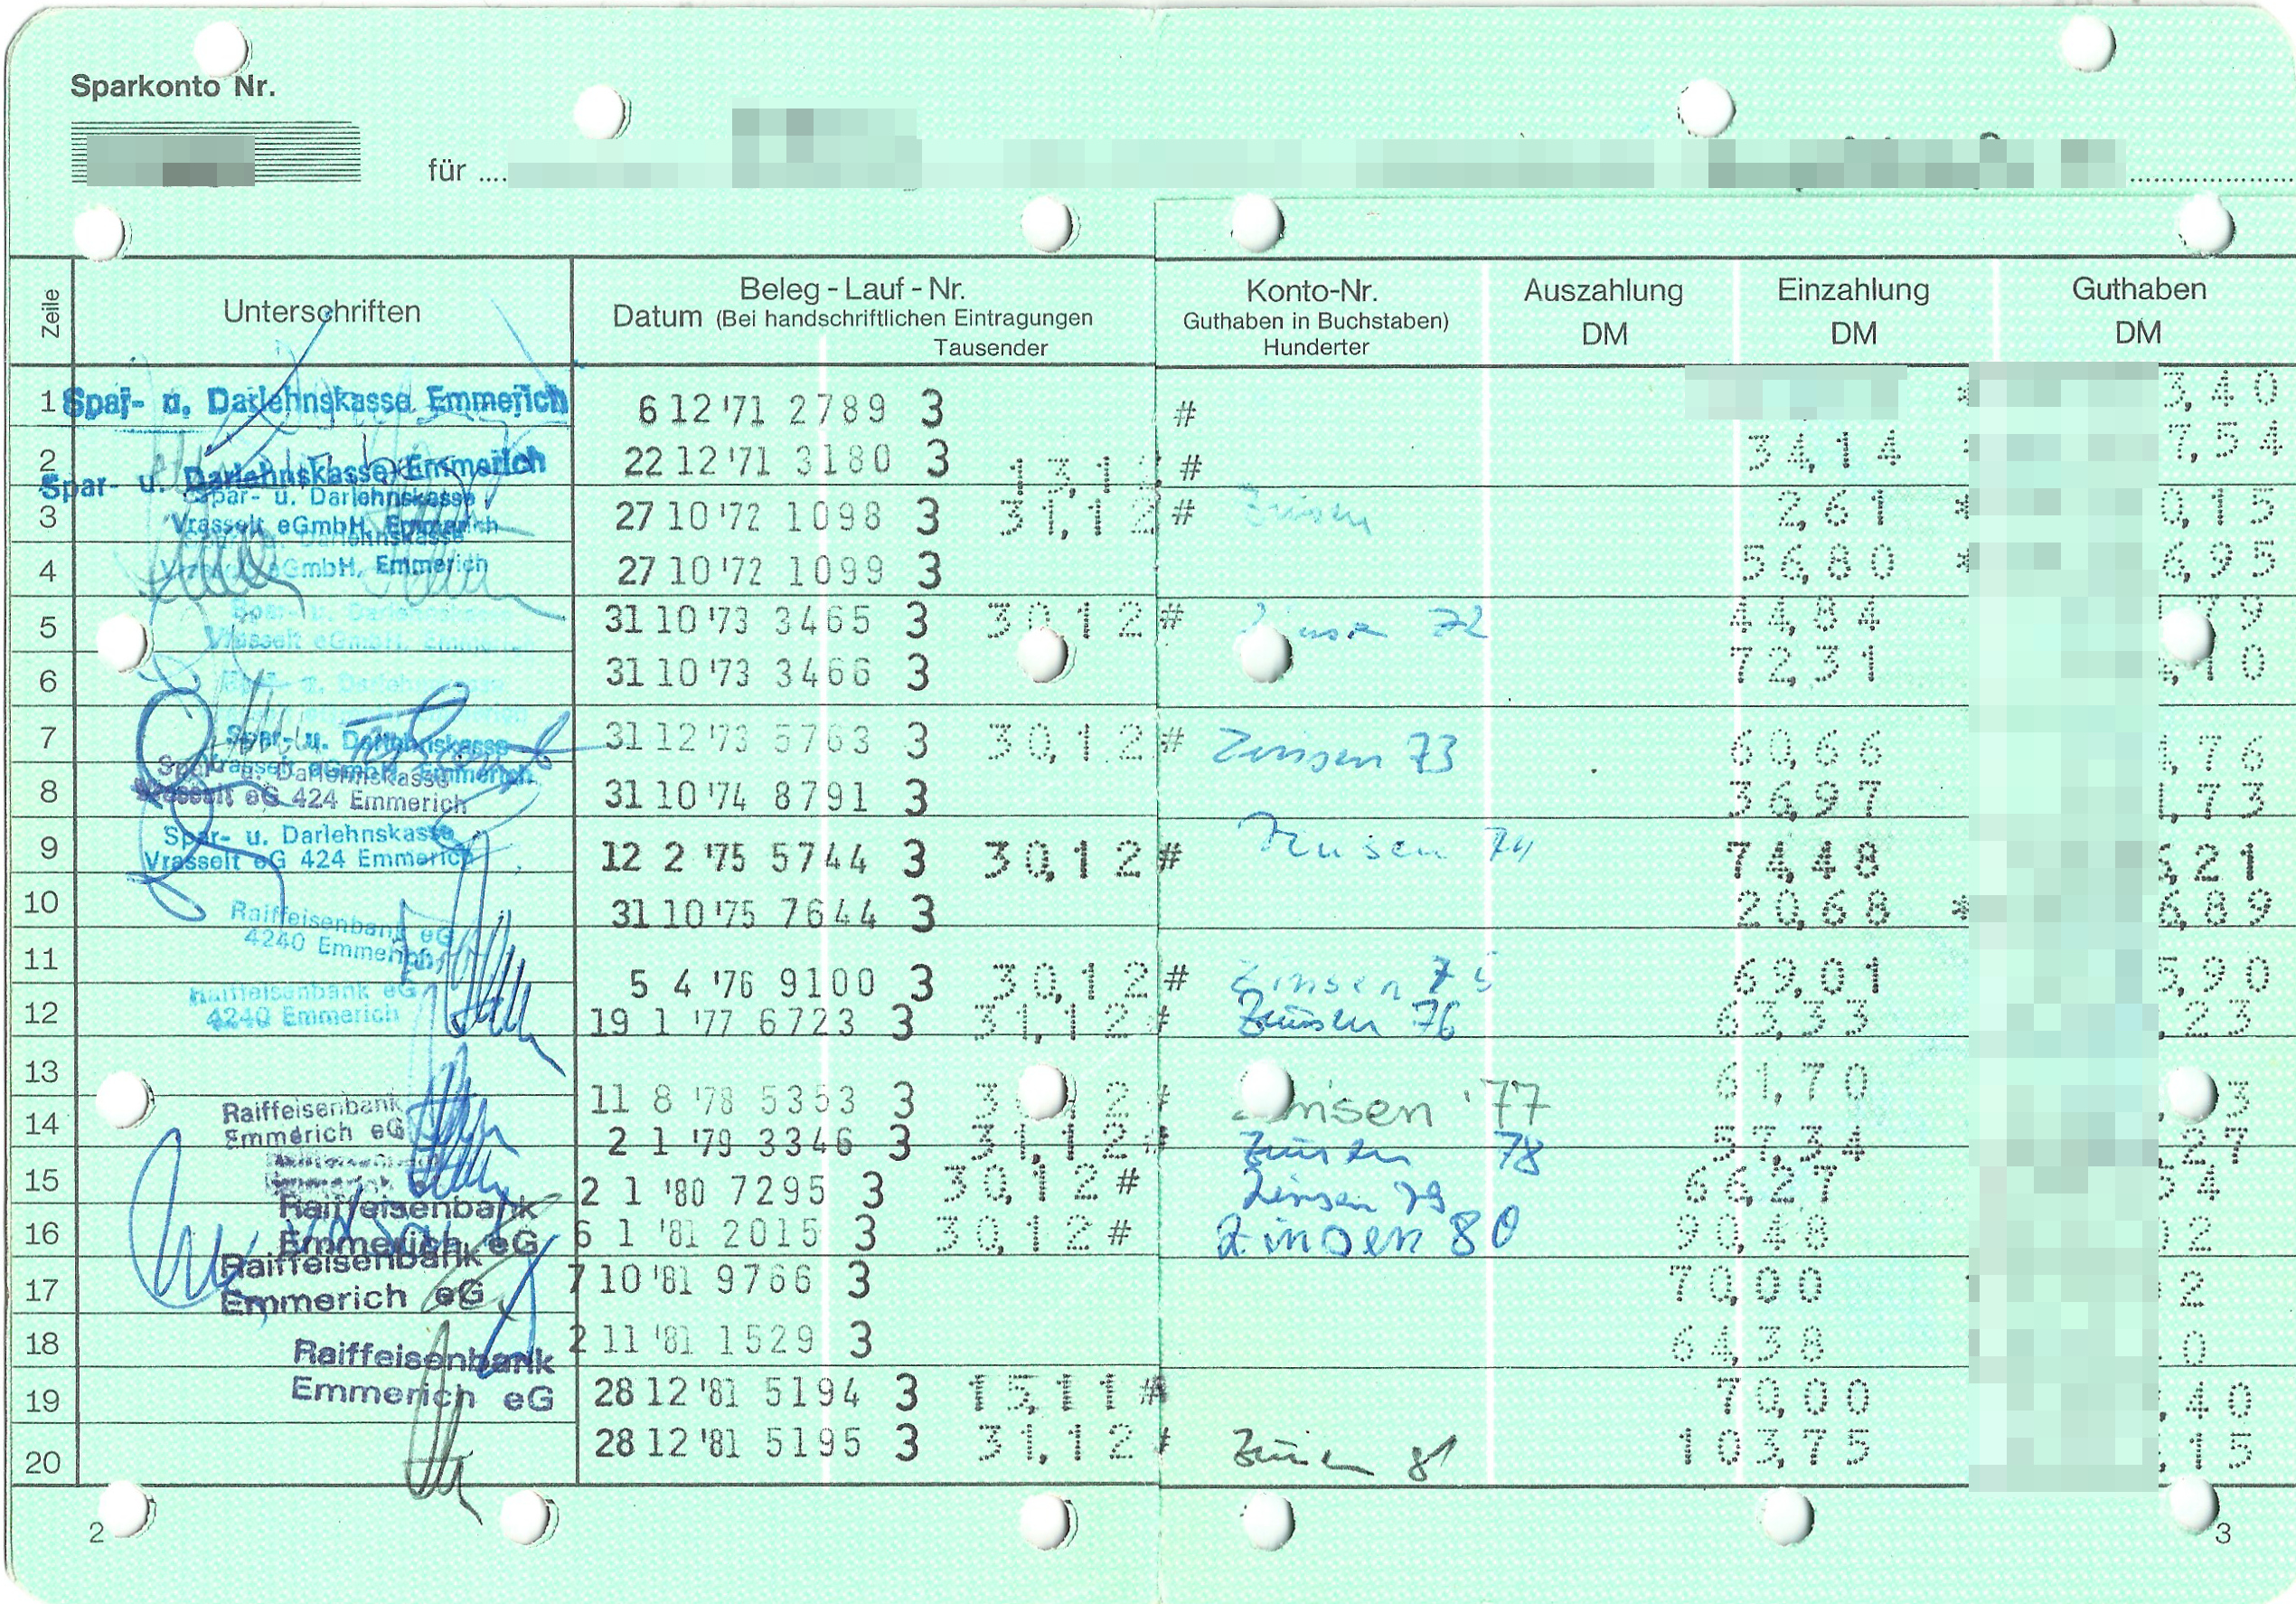 Sparkonto Nr.
für
Zeile
Unterschriften
Beleg - Lauf - Nr.
Datum (Bei handschriftlichen Eintragungen
Tausender
Konto-Nr.
Guthaben in Buchstaben)
Hunderter
Auszahlung
DM
Einzahlung
DM
Guthaben
DM
1 Spar- u. Darlehnskasse Emmerich 6 12 '71 2789 3 # 3,40
2 Spar- u. Darlehnskasse Emmerich 22 12 '71 3180 3 # 34,14 7,54
3 Spar- u. Darlehnskasse Vrasselt eGmbH, Emmerich 27 10 '72 1098 3 31,12 # Zinsen 2,61 * 0,15
4 Vrasselt eGmbH, Emmerich 27 10 '72 1099 3 56,80 * 6,95
5 Spar- u. Darlehnskasse Vrasselt eGmbH, Emmerich 31 10 '73 3465 3 30,12 # 72 44,84 79
6 31 10 '73 3466 3 72,31 10
7 Spar- u. Darlehnskasse Vrasselt eGmbH, Emmerich 31 12 '73 5763 3 30,12 # Zinsen 73 60,66 ,76
8 Spar- u. Darlehnskasse Vrasselt eG 424 Emmerich 31 10 '74 8791 3 36,97 ,73
9 Spar- u. Darlehnskasse Vrasselt eG 424 Emmerich 12 2 '75 5744 3 30,12 # Zinsen 74 74,48 ,21
10 Raiffeisenbank eG 4240 Emmerich 31 10 '75 7644 3 20,68 * 6,89
11 5 4 '76 9100 3 30,12 # Zinsen 75 69,01 5,90
12 Raiffeisenbank eG 4240 Emmerich 19 1 '77 6723 3 31,12 # Zinsen 76 63,33 ,23
13 11 8 '78 5353 3 # Zinsen '77 61,70 3
14 Raiffeisenbank Emmerich eG 2 1 '79 3346 3 31,12 # Zinsen 78 57,34 27
15 2 1 '80 7295 3 30,12 # Zinsen 79 66,27 54
16 Raiffeisenbank Emmerich eG 6 1 '81 2015 3 30,12 # Zinsen 80 90,48 2
17 Raiffeisenbank Emmerich eG 7 10 '81 9766 3 70,00 2
18 2 11 '81 1529 3 64,38 0
19 Raiffeisenbank Emmerich eG 28 12 '81 5194 3 15,11 # 70,00 ,40
20 28 12 '81 5195 3 31,12 # Zinsen 81 103,75 ,15
2
3